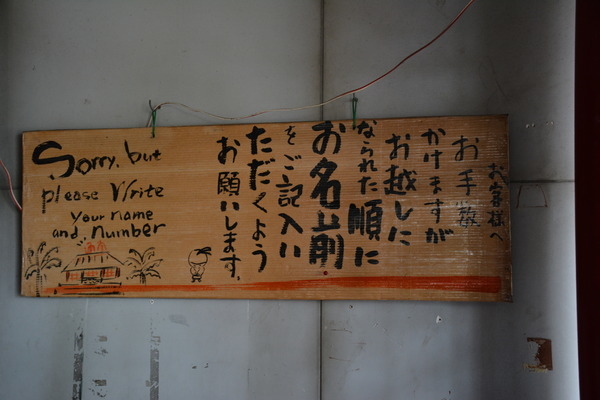 お客様へ
お手数
かけますが
お越しに
なられた順に
お名前
をご記入い
ただくよう
お願いします。
Sorry, but
please Write
Your name
and, number